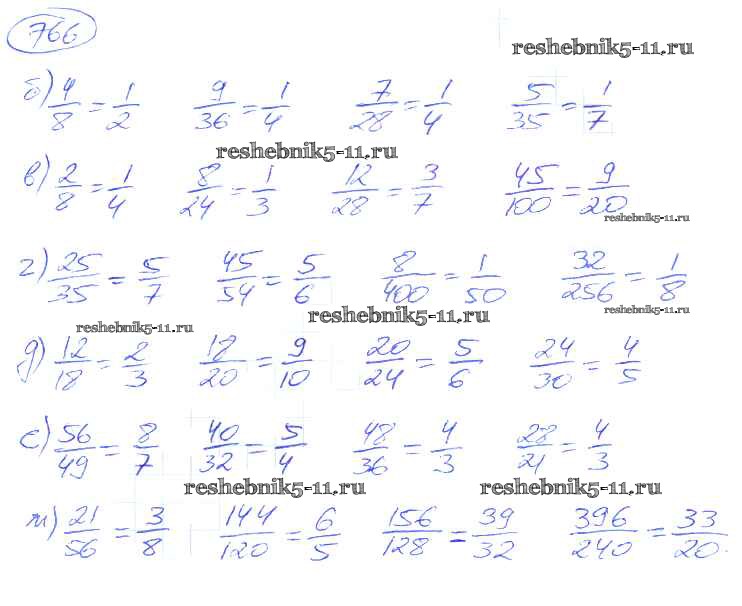 766
reshebnik5-11.ru
б) 4/8 = 1/2 9/36 = 1/4 7/28 = 1/4 5/35 = 1/7
reshebnik5-11.ru
в) 2/8 = 1/4 8/24 = 1/3 12/28 = 3/7 45/100 = 9/20
reshebnik5-11.ru
г) 25/35 = 5/7 45/54 = 5/6 8/400 = 1/50 32/256 = 1/8
reshebnik5-11.ru
reshebnik5-11.ru
reshebnik5-11.ru
д) 12/18 = 2/3 18/20 = 9/10 20/24 = 5/6 24/30 = 4/5
е) 56/49 = 8/7 40/32 = 5/4 48/36 = 4/3 28/21 = 4/3
reshebnik5-11.ru reshebnik5-11.ru
ж) 21/56 = 3/8 144/120 = 6/5 156/128 = 39/32 396/240 = 33/20.